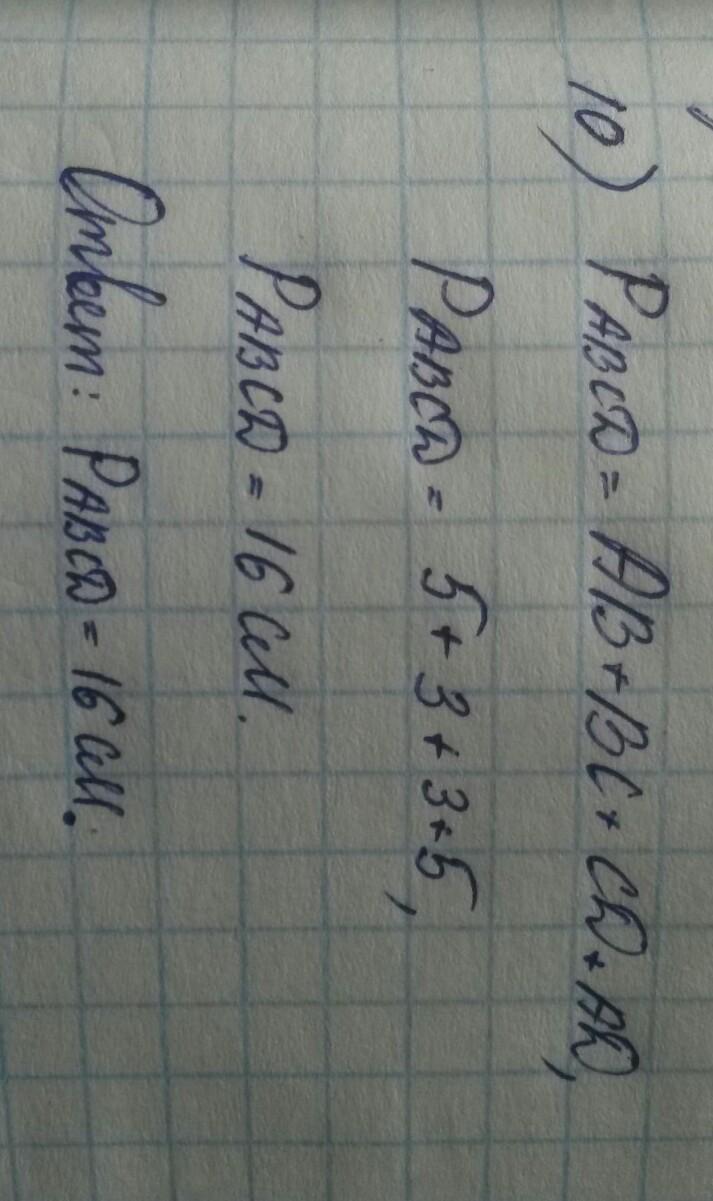 10) P ABCD = AB + BC + CD + AD,
P ABCD = 5 + 3 + 3 + 5,
P ABCD = 16 см.
Ответ: P ABCD = 16 см.